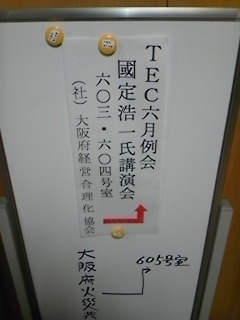 TEC六月例会
國定浩一氏講演会
六〇三・六〇四号室
(社)大阪府経営合理化協会
605号室
大阪府火災共